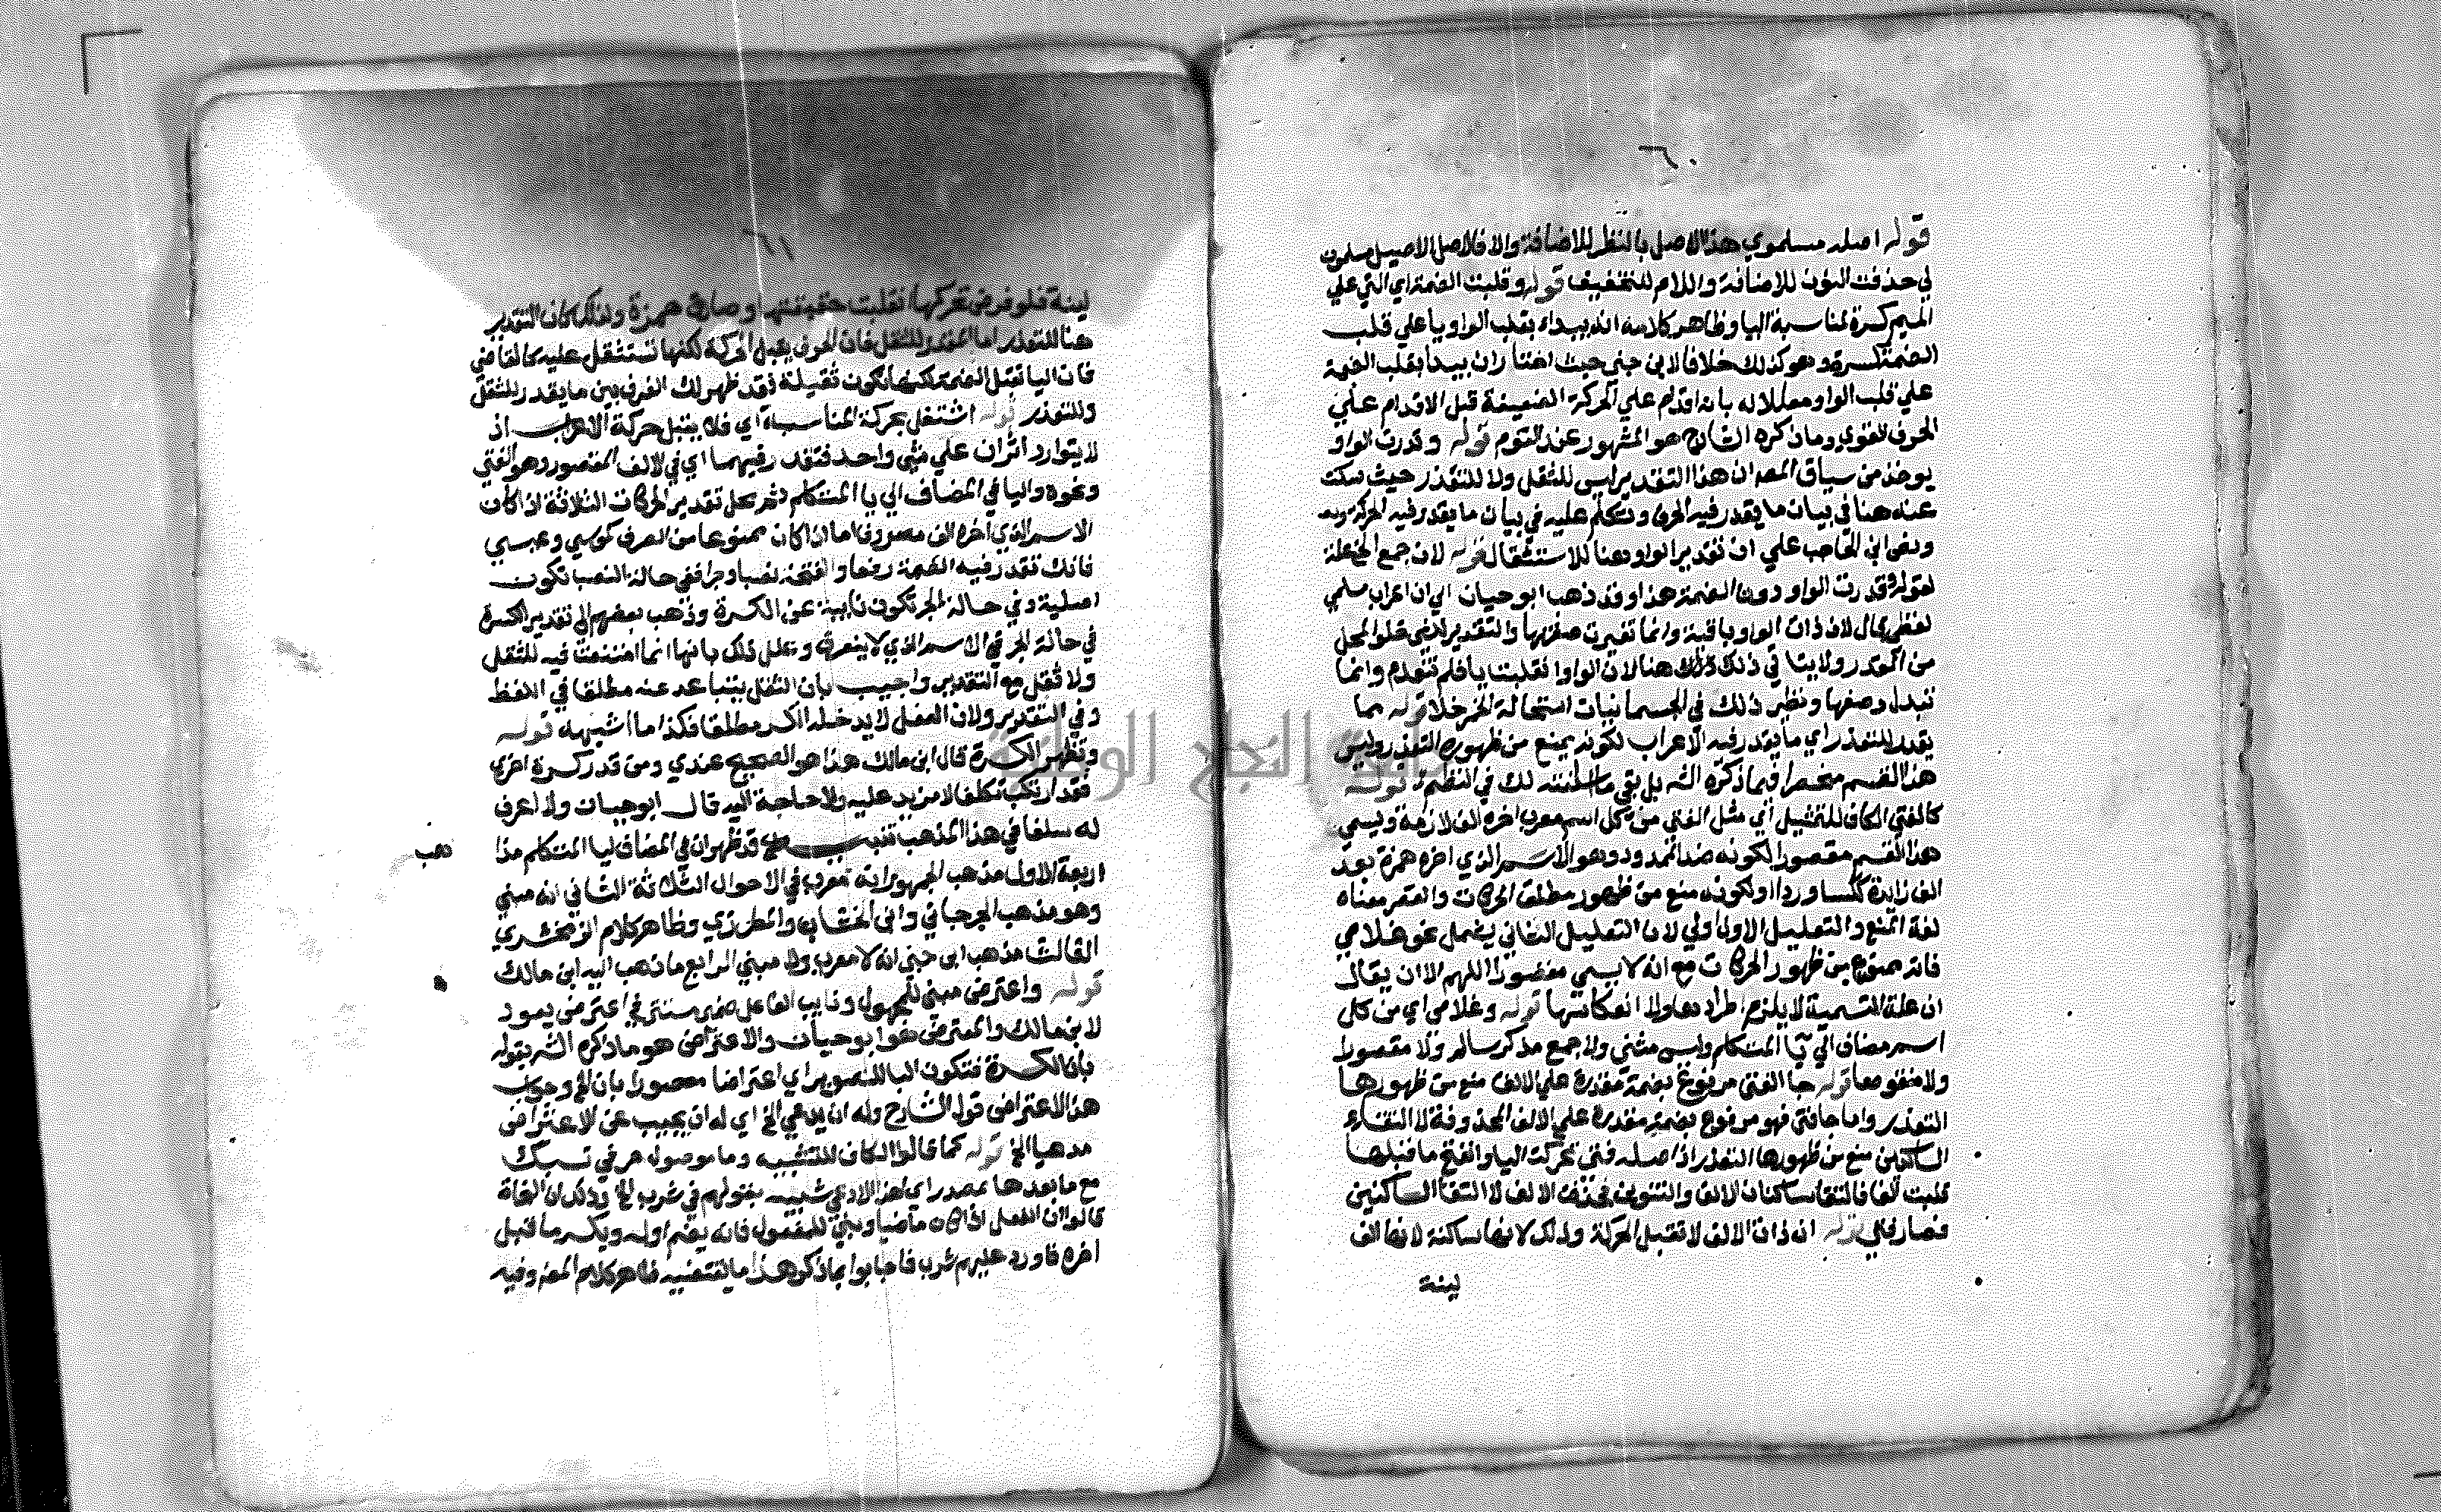 ٦٠
قوله اصله مسلموي هذا الاصل بالنظر للاضافة والا فلاصل الاصيل مسلمون
لي حذفت النون للاضافة واللام للتخفيف قوله وقلبت الضمة اي التي علي
الميم كسرة لمناسبة اليا وظاهر كلامه انه يبداء بقلب الواو يا علي قلب
الضمة كسرة وهو كذلك خلافا لابن جني حيث اختا ران يبدا بقلب الضمة
علي قلب الواو معللا له بانه اقدام علي الحركة الضعيفة قبل الاقدام علي
الحرف القوي وما ذكره الشارح هو المشهور عند القوم قوله وقدرت الواو
يوخذ من سياق المص ان هذا التقدير ليس للثقل ولا للتعذر حيث سكت
عنه هنا في بيان ما يقدر فيه الحرف وتكلم عليه في بيان ما يقدر فيه الحركة
ونص ابن الحاجب علي ان تقدير الواو هنا للاستثقال قوله لان جمع الخ علة
لقوله وقدرت الواو دون الضمة هذا وقد ذهب ابو حيان الي ان اعراب مسلمي
لفظي قال لان ذات الواو باقية وانما تغيرت صفتها والتقدير لا نخلو المحل
من المقدر ولا يتا تي ذلك هنا لان الواو انقلبت يا فلم تنعدم وانما
تبدل وصفها ونظير ذلك في الجسمانيات استحالة الخمر خلا قوله مما
يقدر للتعذر اي ما يقدر فيه الاعراب لكونه يمنع من ظهوره التعذر وليس
هذا القسم منحصرا فيما ذكره الشه بل بقي ما لك في النظم قوله
كالفتي الكاف للتمثيل اي مثل الفتي من كل اسم معرب اخره الف لازمة ويسمي
هذا القسم مقصورا لكونه ضد الممدود وهو الاسم الذي اخره همزة بعد
الف زايدة ككسا وردا او لكونه منع من ظهور مطلق الحركات والقصر معناه
لغة المنع والتعليل الاول اولي لان التعليل الثاني يشمل نحو غلامي
فانه ممنوع من ظهور الحركات مع انه لا يسمي مقصورا اللهم الا ان يقال
ان علة التسمية لا يلزم اطرادها ولا انعكاسها قوله وغلامي اي من كل
اسم مضاف الي يا المتكلم وليس مثني ولا جمع مذكر سالم ولا مقصورا
ولا منقوصا قوله جا الفتي مرفوع بضمة مقدرة علي الالف منع من ظهورها
التعذر واما جا فتي فهو مرفوع بضمة مقدرة علي الالف المحذوفة لالتقاء
الساكنين منع من ظهورها التعذر اذ اصله فتي تحركت اليا وانفتح ما قبلها
قلبت الفا فالتقا ساكنان الالف والتنوين فحذفت الالف لالتقا الساكنين
فصار فتي قوله ان ذات الالف لا تقبل الحركة وذلك لانها ساكنة لانها الف
لينة
٦١
لينة فلو فرض تحركها انقلبت حقيقتها وصارت همزة ولذلك كان التقدير
هنا للتعذر اما المقدر للثقل فان الحرف يقبل الحركة لكنها تستثقل عليه كالقاضي
فان اليا تقبل الضمة لكنها تكون ثقيلة فقد ظهر لك الفرق بين ما يقدر للثقل
وللتعذر قوله اشتغل بحركة المناسبة اي فلا يقبل حركة الاعراب اذ
لا يتوارد اثران علي شي واحد فتقدر فيهما اي في الالف المقصور وهو الفتي
ونحوه واليا في المضاف الي يا المتكلم ثم محل تقدير الحركات الثلاثة اذا كان
الاسم الذي اخره الف مصروفا اما اذا كان ممنوعا من الصرف كموسي وعيسي
فانك تقدر فيه الضمة رفعا والفتحة نصبا وجرا ففي حالة النصب تكون
اصلية وفي حالة الجر تكون نايبة عن الكسرة وذهب بعضهم الي تقدير الكسرة
في حالة الجر في الاسم الذي لا ينصرف وعلل ذلك بانها انما امتنعت فيه للثقل
ولا ثقل مع التقدير واجيب بان الثقل يتباعد عنه مطلقا في اللفظ
وفي التقدير ولان الفعل لا يدخله الكسر مطلقا فكذا ما اشبهه قوله
وتظهر الكسرة قال ابن مالك هذا هو الصحيح عندي ومن قدر كسرة اخري
فقد ارتكب تكلفا لا مزيد عليه ولا حاجة اليه قال ابو حيان ولا اعرف
له سلفا في هذا المذهب تنبيه قد ظهر ان في المضاف ليا المتكلم مذا
هب
اربعة الاول مذهب الجمهور انه معرب في الاحوال الثلاثة الثاني انه مبني
وهو مذهب الجرجاني وابن الخشاب والمطرزي وظاهر كلام الزمخشري
الثالث مذهب ابن جني انه لا معرب ولا مبني الرابع ما ذهب اليه ابن مالك
قوله واعترض مبني للمجهول ونايب الفاعل ضمير مستتر في اعترض يعود
لابن مالك والمعترض هو ابو حيان والاعتراض هو ما ذكره الشه بقوله
بان الكسرة فتكون البا للتصوير اي اعتراضا مصورا بان الخ وجواب
هذا الاعتراض قول الشارح وله ان يدعي الخ اي له ان يجيب عن الاعتراض
مدعيا الخ قوله كما قالوا الكاف للتشبيه وما موصول حرفي تسبك
مع ما بعدها بمصدر اي هذا الادعي شبيه بقولهم في شرب الخ وذلك ان النحاة
قالوا ان الفعل اذا كان ماضيا وبني للمفعول فانه يضم اوله ويكسر ما قبل
اخره فاورد عليهم شرب فاجابوا بما ذكر هذا ما يقتضيه ظاهر كلام المص وفيه